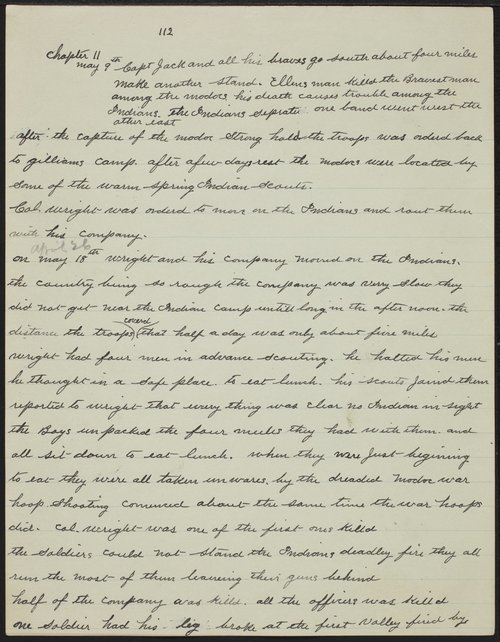 112
Chapter 11
may 9th Capt Jack and all his braves go south about four miles
make another stand. Ellens man kills the Bravest man
among the modocs his death causes trouble among the
Indians. the Indians seprate one band went west the
other east
after the capture of the modoc Strong hold the troops was orderd back
to gilliams camp. after afew days rest the modocs were located by
some of the warm spring Indian scouts.
Col. wright was orderd to move on the Indians and rout them
with his company.
april 26
on may 18th wright and his company moved on the Indians.
the country being so rough the company was very slow they
did not get near the Indian camp untill long in the after noon. the
coverd
distance the troops that half a day was only about five miles
wright had four men in advance scouting. he halted his men
he thought in a safe place to eat lunch. his scouts Joind them
reported to wright that every thing was clear no Indian in sight
the Boys unpacked the four mules they had with them and
all sit down to eat lunch. when they were Just begining
to eat they were all taken unwares by the dreaded modoc war
hoop. Shooting comenced about the same time the war hoops
did. Col. wright was one of the first ones killd
the soldiers could not stand the Indians deadly fire they all
run the most of them leaveing their guns behind
half of the company was killd. all the officers was killd
one soldier had his leg broke at the first valley fired by